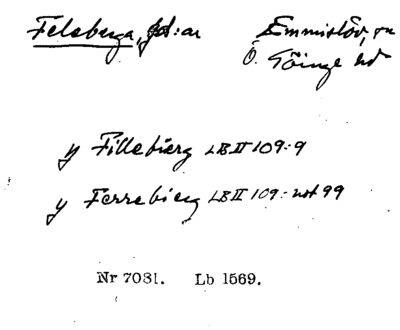 Felsberga, gd:ar Emmislöv, sn
Ö. Göinge hd
y Fillebierg LB II 109:9
y Ferrebierg LB II 109: not 99
Nr 7081. Lb 1569.